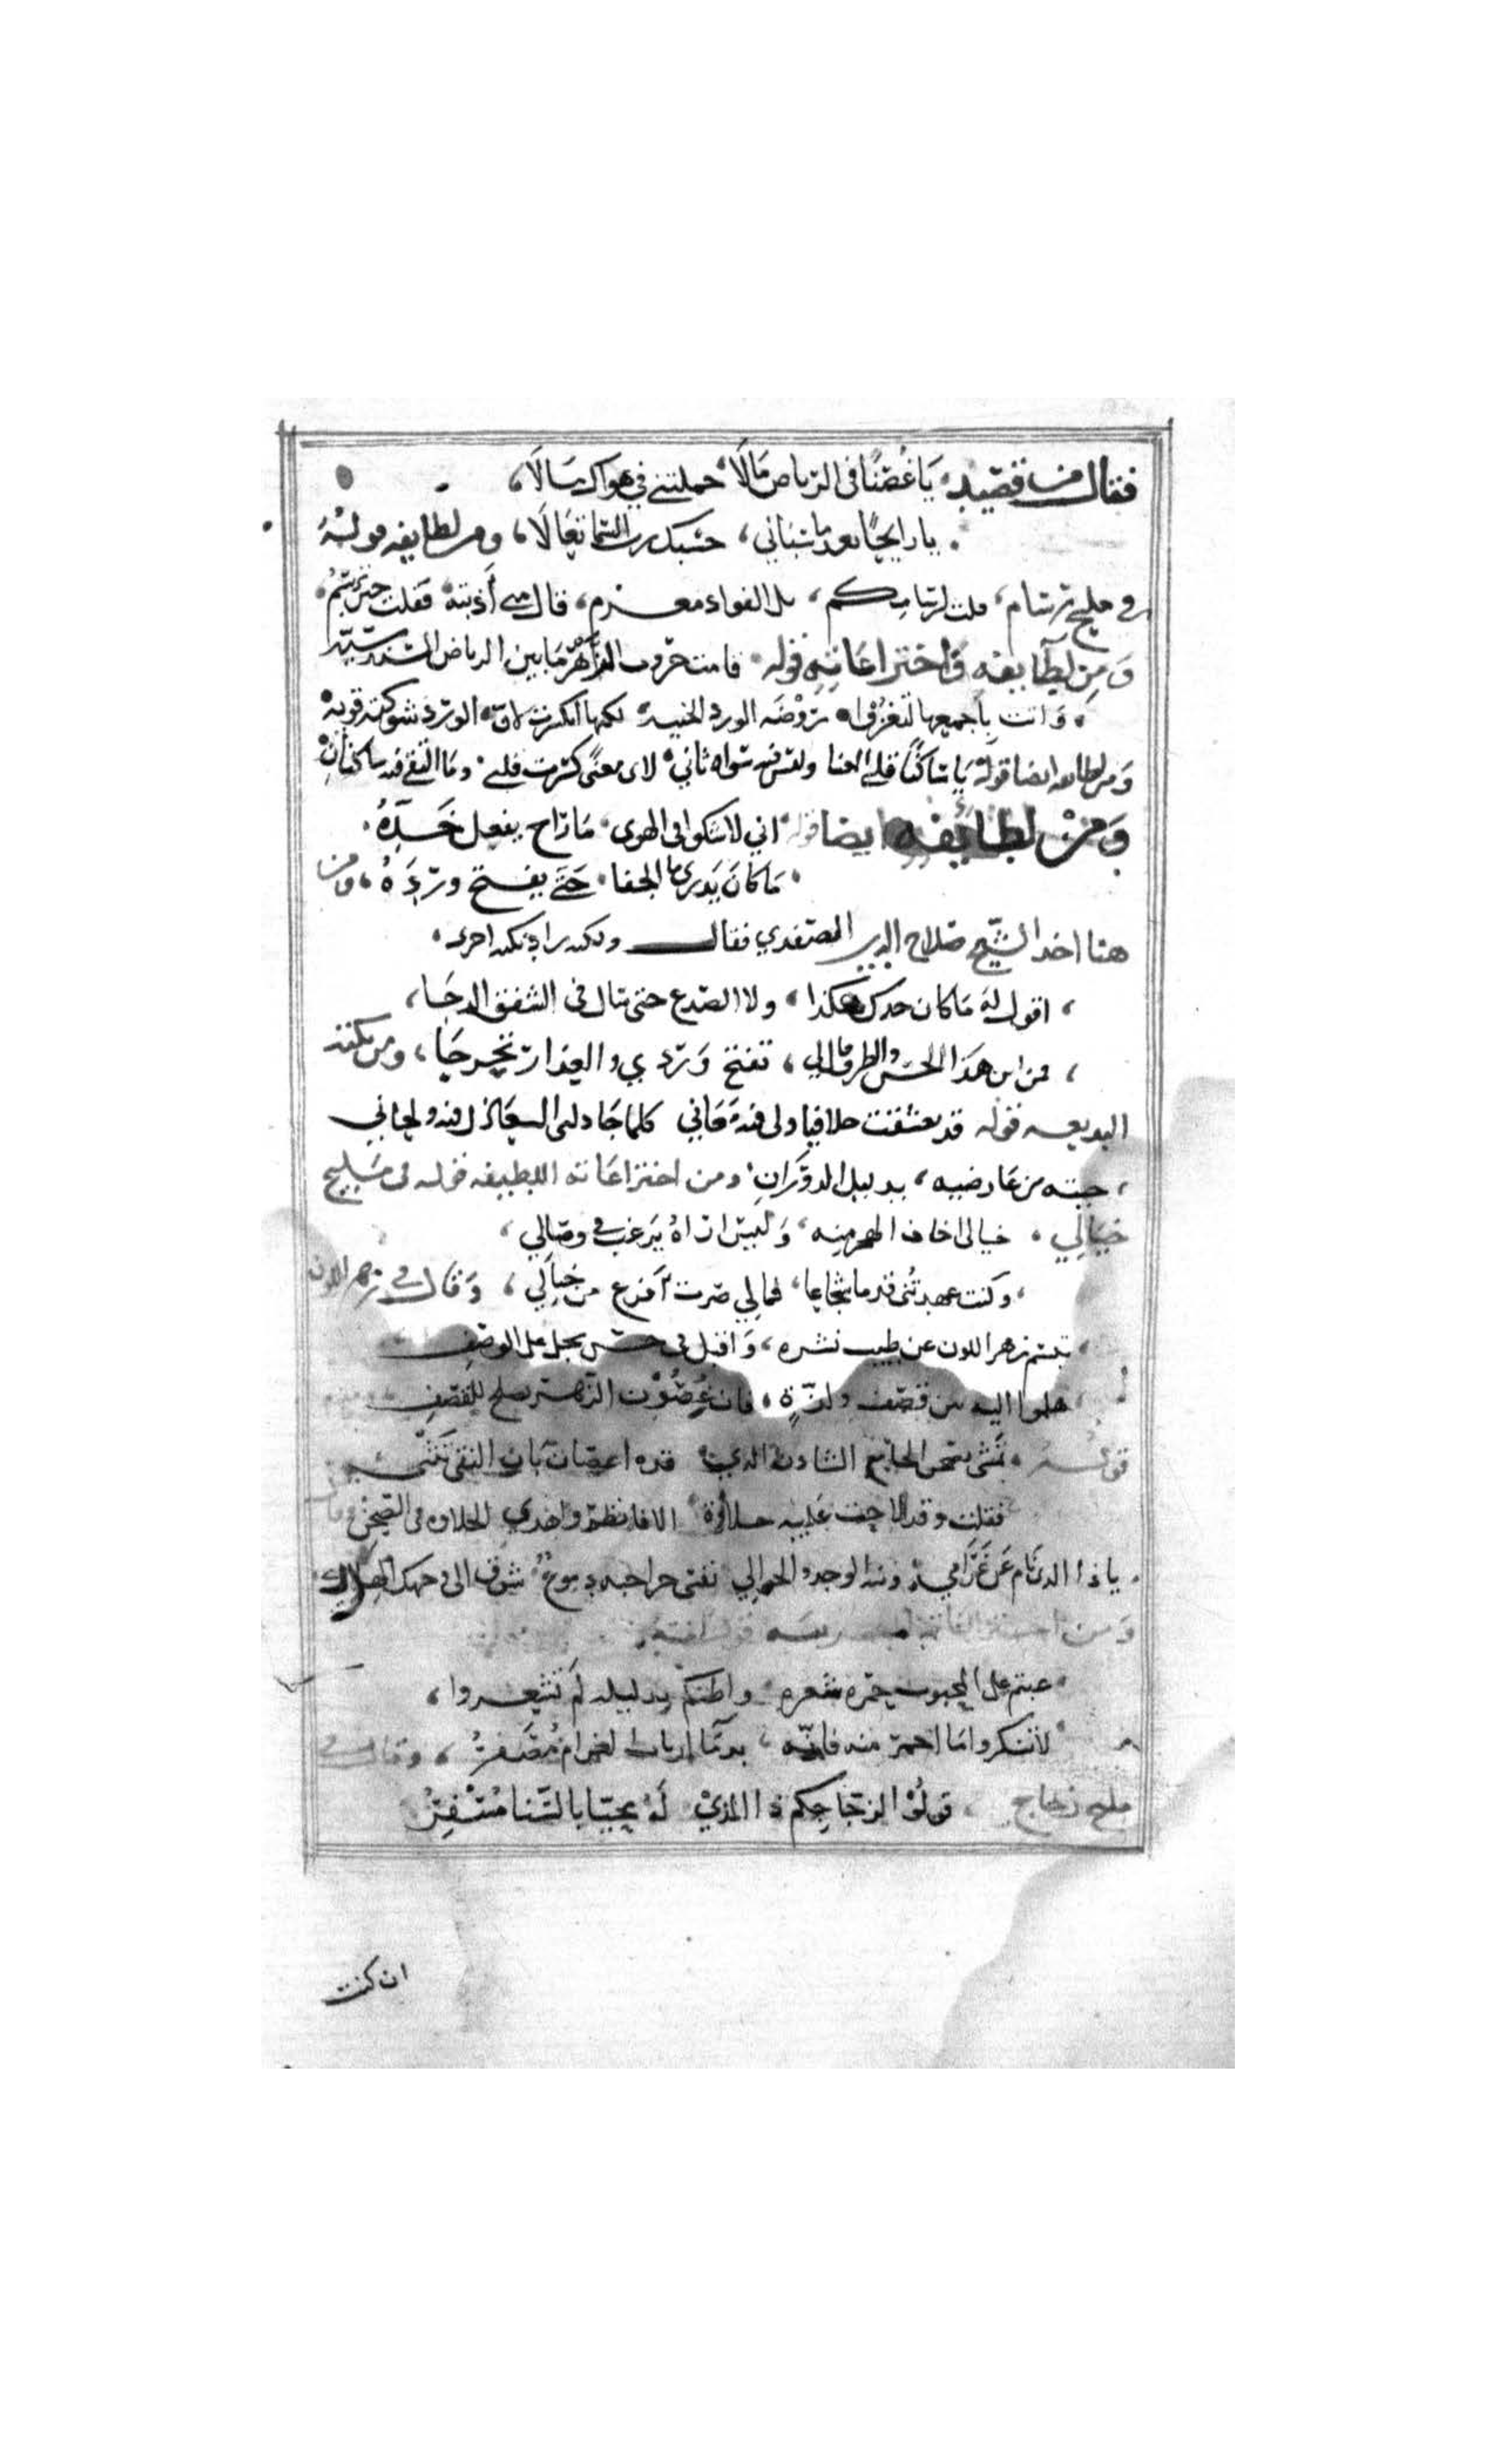 فقال من قصيد يَا غُصْنًا في الرياض مَالَا حملتني في هواك يسالَا
يا رايحًا بعد ما سباني حسبك رب السما تعَالَا ومن لطايفه قوله
في مليح رسام قلت لرسامكم بك الفواد مغرم قال متى أذيبه فقلت حين ترسم
وَمِن لطَايفه وَاختراعَاته قوله قامت حروب الزهر مَا بين الرياض السندسيه
وَاتت بأجمعها لتغزو روْضَه الورد الجنيه لكنها انكسرت لان الورد شوكته قويه
وَمن لطايفه ايضا قوله يَا سَاكنًا قلبي المعنا وليس فيه سواه ثاني لاى معنًى كسرت قلبي ومَا التقى فيه ساكنانِ
وَمنْ لطائفه ايضا قوله اني لاشكوا في الهوى مَا رَاح يفعل خَدّهُ
مَا كَانَ يَدري ما الجفا حَتى يفتح وردَهُ ومن
هنا اخد الشيخ صَلاح الدين الصفدي فقال ولكنه زاد نكته اخرى
اقول لهَ مَا كان خدك هكذا ولا الصدع حتى سال في الشفق الدجَا
فمن اين هَذا الحسْن والظرف قال لي تفتح وَردي والعِذار تخرجَا ومن نكته
البديعيه قوله قد تعشقت حلافيا ولى فيهَ مَعَاني كلما جَادلنى العَاذل فيه ولحاني
جيته من عَارضيه بدليل الدوَرَانِ ومن اختراعَاته اللطيفه قوله في مَليح
خيَالِي خيالى اخاف الهجر منه وَليسَ اراهُ يَرغب في وصَالي
وكنت عهدتنى قدما شجاعا فمالي صرت أفزع من خيَالي وَقال في زهر اللوز
تبسم زهر اللوز عن طيب نشره وَاقبل في حسْن يجل على الوَصفِ
هلموا اليه بين قصْف ولذّةٍ فان غُصُوْن الزهْر يصلح للقصفِ
قوله تمشى بصحن الجامع الشادن الذي قده اغصَان بَان النقى تَنْثَنِى
فقلت وقد لاحت عَليه حلاوة الا فانظروا هذي الحلاوه في الصحن وقال
يا ذا الذي نَام عَن غَرَامي ونبه الوجد والجوالي
وَمن اختراعَاته قوله
عبتم على المحبوب حمرة شعره واظنكم بدليله لَم تشعروا
لا تنكروا مَا احمر منه فانّه بدمَا ارباب الغرام مُضَفرُ وقال في
مليح زجاج قولُوْا لزجَاجكم ذا الذيْ لَهُ محيَّا بالسَّنا مُسْفِرُ
ان كنت